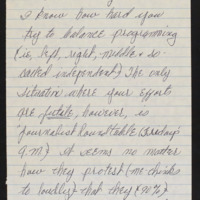 I know how hard you
try to balance programming
(ie, left, right, middle & so
called independent) The only
situation where your efforts
are futile, however, is
"journalist roundtable (Sundays
9 M) It seems no matter
how they protest (me thinks
to loudly) that they (90%)